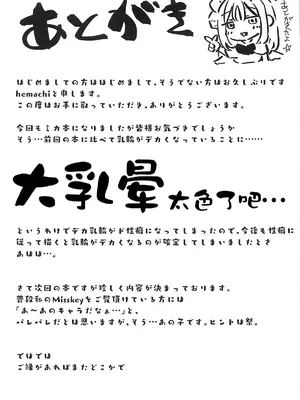 あとがき
あとがきだよ
はじめましての方ははじめまして、そうでない方はお久しぶりです
hemachiと申します。
この度はお手に取っていただき、ありがとうございます。
今回もミカ本になりましたが皆様お気づきでしょうか
そう…前回の本に比べて乳輪がデカくなっていることに……
大乳暈 太色了吧…
というわけでデカ乳輪がド性癖になってしまったので、今後も性癖に
従って描くと乳輪がデカくなるのが確定してしまいましたとさ
あはは…。
さて次回の本ですが珍しく内容が決まっております。
普段私のMisskeyをご覧頂けている方には
「あ～あのキャラだなぁ…」と、
バレバレだとは思いますが、そう…あの子です。ヒントは祭。
ではでは
ご縁があればまたどこかで